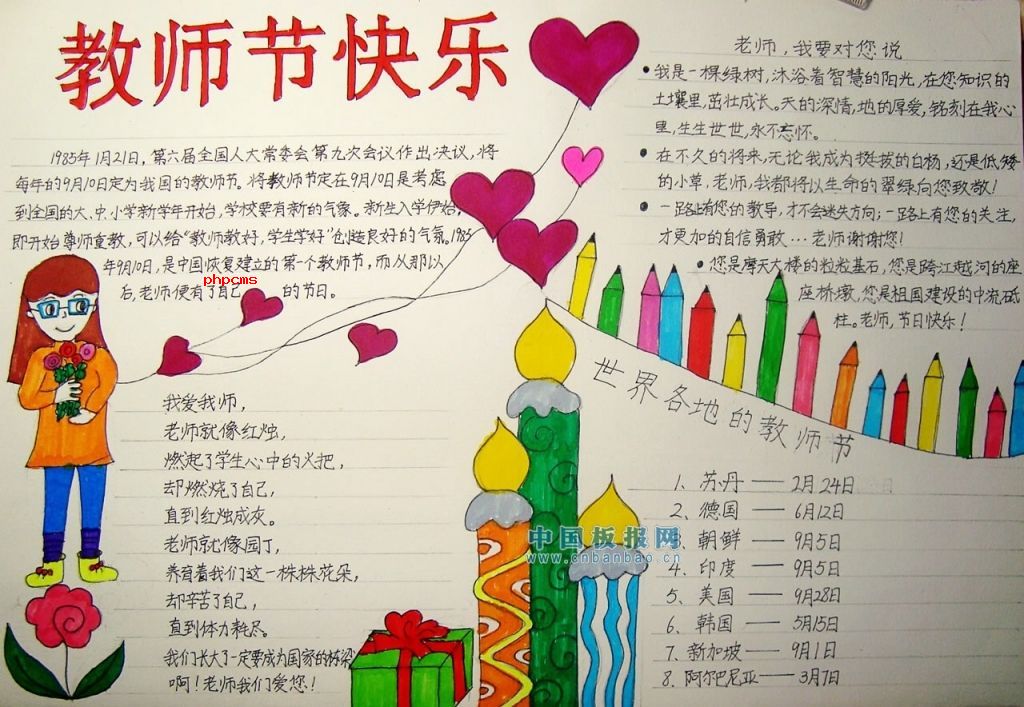 教师节快乐
1985年1月21日，第六届全国人大常委会第九次会议作出决议，将
每年的9月10日定为我国的教师节。将教师节定在9月10日是考虑
到全国的大、中、小学新学年开始，学校要有新的气象。新生入学伊始，
即开始尊师重教，可以给“教师教好，学生学好”创造良好的气氛。1985
年9月10日，是中国恢复建立的第一个教师节，而从那以
phpcms
后，老师便有了自己的节日。
我爱我师，
老师就像红烛，
燃起了学生心中的火把，
却燃烧了自己，
直到红烛成灰。
老师就像园丁，
养育着我们这一株株花朵，
却辛苦了自己，
直到体力耗尽。
我们长大了一定要成为国家的栋梁
啊！老师我们爱您！
老师，我要对您说
•我是一棵绿树，沐浴着智慧的阳光，在您知识的
土壤里，茁壮成长。天的深情，地的厚爱，铭刻在我心
里，生生世世，永不忘怀。
•在不久的将来，无论我成为挺拔的白杨，还是低矮
的小草，老师，我都将以生命的翠绿向您致敬！
•一路上有您的教导，才不会迷失方向；一路上有您的关注，
才更加的自信勇敢…老师谢谢您！
•您是摩天大楼的粒粒基石，您是跨江越河的座
座桥墩，您是祖国建设的中流砥
柱。老师，节日快乐！
世界各地的教师节
1、苏丹——2月24日
2、德国——6月12日
朝鲜——9月5日
4、印度——9月5日
5、美国——9月28日
6、韩国——5月15日
7、新加坡——9月1日
8、阿尔巴尼亚——3月7日
中国板报网
www.cnbanbao.cn